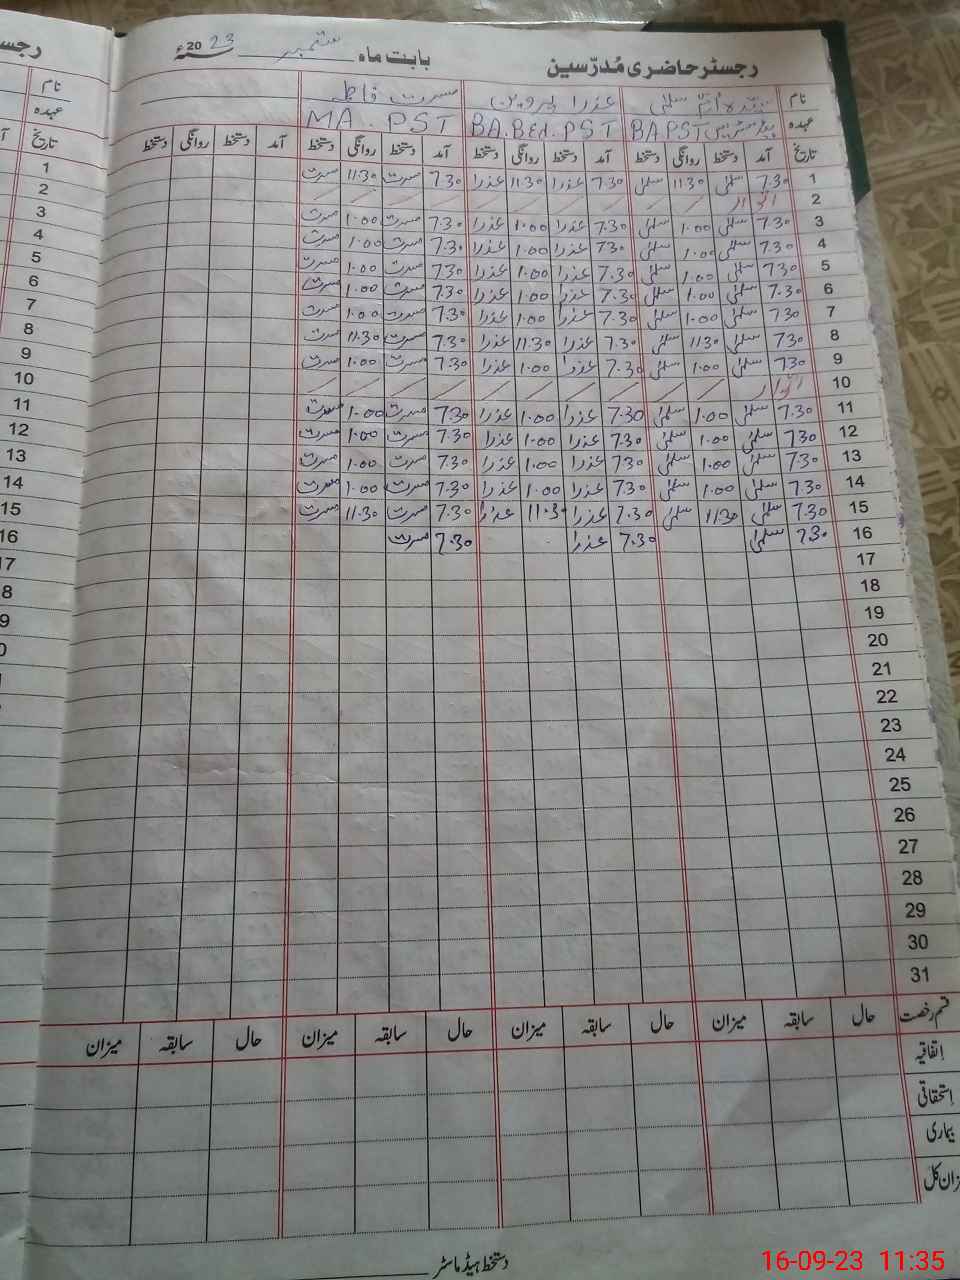 رجسٹر حاضری مُدرّسین بابت ماہ ستمبر سنہ 2023ء
نام سلمیٰ عذرا پروین مسرت فاطمہ
عہدہ BA PST BA.BEd.PST MA.PST
تاریخ آمد دستخط روانگی دستخط آمد دستخط روانگی دستخط آمد دستخط روانگی دستخط آمد دستخط روانگی دستخط
1 7.30 سلمیٰ 11.30 سلمیٰ 7.30 عذرا 11.30 عذرا 7.30 مسرت 11.30 مسرت
2 اتوار
3 7.30 سلمیٰ 1.00 سلمیٰ 7.30 عذرا 1.00 عذرا 7.30 مسرت 1.00 مسرت
4 7.30 سلمیٰ 1.00 سلمیٰ 7.30 عذرا 1.00 عذرا 7.30 مسرت 1.00 مسرت
5 7.30 سلمیٰ 1.00 سلمیٰ 7.30 عذرا 1.00 عذرا 7.30 مسرت 1.00 مسرت
6 7.30 سلمیٰ 1.00 سلمیٰ 7.30 عذرا 1.00 عذرا 7.30 مسرت 1.00 مسرت
7 7.30 سلمیٰ 1.00 سلمیٰ 7.30 عذرا 1.00 عذرا 7.30 مسرت 1.00 مسرت
8 7.30 سلمیٰ 11.30 سلمیٰ 7.30 عذرا 11.30 عذرا 7.30 مسرت 11.30 مسرت
9 7.30 سلمیٰ 1.00 سلمیٰ 7.30 عذرا 1.00 عذرا 7.30 مسرت 1.00 مسرت
10 اتوار
11 7.30 سلمیٰ 1.00 سلمیٰ 7.30 عذرا 1.00 عذرا 7.30 مسرت 1.00 مسرت
12 7.30 سلمیٰ 1.00 سلمیٰ 7.30 عذرا 1.00 عذرا 7.30 مسرت 1.00 مسرت
13 7.30 سلمیٰ 1.00 سلمیٰ 7.30 عذرا 1.00 عذرا 7.30 مسرت 1.00 مسرت
14 7.30 سلمیٰ 1.00 سلمیٰ 7.30 عذرا 1.00 عذرا 7.30 مسرت 1.00 مسرت
15 7.30 سلمیٰ 11.30 سلمیٰ 7.30 عذرا 11.30 عذرا 7.30 مسرت 11.30 مسرت
16 7.30 سلمیٰ 7.30 عذرا 7.30 مسرت
17
18
19
20
21
22
23
24
25
26
27
28
29
30
31
قسم رخصت حال سابقہ میزان حال سابقہ میزان حال سابقہ میزان حال سابقہ میزان
اِتفاقیہ
اِستحقاقی
بیماری
میزان کُل
دستخط ہیڈ ماسٹر
نام
عہدہ
تاریخ
1
2
3
4
5
6
7
8
9
10
11
12
13
14
15
16
16-09-23 11:35